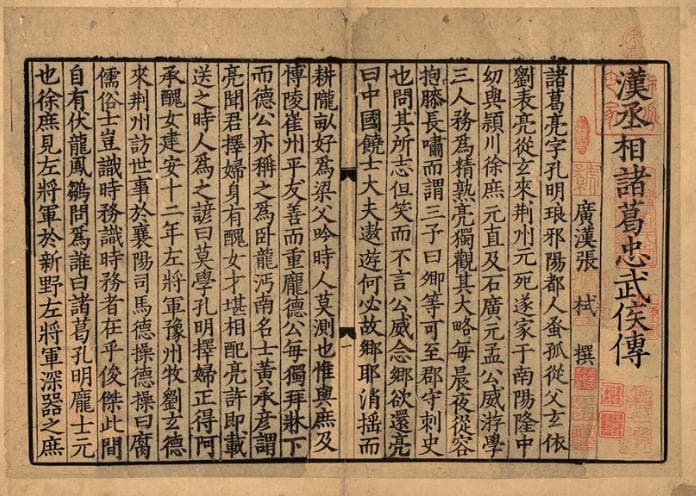 漢丞相諸葛忠武侯傳
廣漢張 栻 撰
諸葛亮字孔明琅邪陽都人蚤孤從父玄依
劉表亮從玄來荆州元死遂家于南陽隆中
幼與潁川徐庶元直及石廣元孟公威游學
三人務爲精熟亮獨觀其大略每晨夜從容
抱膝長嘯而謂三子曰卿等可至郡守刺史
也問其所志但笑而不言公威念鄉欲還亮
曰中國饒士大夫遨遊何必故鄉耶消摇而
耕隴畝好爲梁父吟時人莫測也惟與庶及
博陵崔州平友善而重龐德公每獨拜牀下
而德公亦稱之爲卧龍沔南名士黃承彦謂
亮聞君擇婦身有醜女才堪相配亮許即載
送之時人爲之諺曰莫學孔明擇婦正得阿
承醜女建安十二年左將軍豫州牧劉玄德
來荆州訪世事於襄陽司馬德操德操曰腐
儒俗士豈識時務識時務者在乎俊傑此間
自有伏龍鳳鶵問爲誰曰諸葛孔明龐士元
也徐庶見左將軍於新野左將軍深器之庶